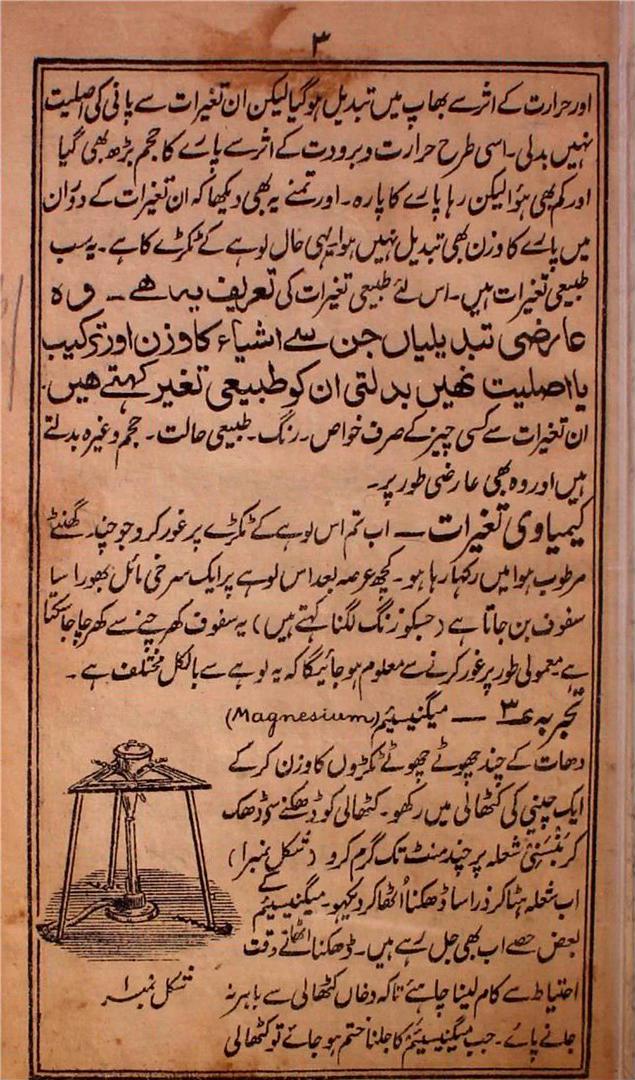 ۳
اور حرارت کے اثر سے بھاپ میں تبدیل ہوگیا لیکن ان تغیرات سے پانی کی اصلیت
نہیں بدلی۔ اسی طرح حرارت و برودت کے اثر سے پارے کا حجم بڑھ بھی گیا
اور کم بھی ہؤا لیکن رہا پارے کا پارہ۔ اور تمنے یہ بھی دیکھا کہ ان تغیرات کے دوران
میں پارے کا وزن بھی تبدیل نہیں ہوا یہی حال لوہے کے ٹکڑے کا ہے۔ یہ سب
طبیعی تغیرات ہیں۔ اس لئے طبیعی تغیرات کی تعریف یہ ہے۔ وہ
عارضی تبدیلیاں جن سے اشیاء کا وزن اور ترکیب
یا اصلیت نہیں بدلتی ان کو طبیعی تغیر کہتے ہیں۔
ان تغیرات سے کسی چیز کے صرف خواص۔ رنگ۔ طبیعی حالت۔ حجم وغیرہ بدلتے
ہیں اور وہ بھی عارضی طور پر۔
کیمیاوی تغیرات — اب تم اس لوہے کے ٹکڑے پر غور کرو جو چند گھنٹے
مرطوب ہوا میں رکھا رہا ہو۔ کچھ عرصہ بعد اس لوہے پر ایک سرخی مائل بھورا سا
سفوف بن جاتا ہے (جسکو زنگ لگنا کہتے ہیں) یہ سفوف کھرچنے سے کھرچا جا سکتا
ہے معمولی طور پر غور کرنے سے معلوم ہو جائیگا کہ یہ لوہے سے بالکل مختلف ہے۔
تجربہ ع۳ — میگنیسیئم (Magnesium)
دھات کے چند چھوٹے چھوٹے ٹکڑوں کا وزن کرکے
ایک چینی کی کٹھالی میں رکھو۔ کٹھالی کو ڈھکنے سے ڈھک
کر بنسنی شعلہ پر چند منٹ تک گرم کرو (شکل نمبر ۱)
اب شعلہ ہٹا کر ذرا سا ڈھکنا اُٹھا کر دیکھو۔ میگنیسیئم کے
بعض حصے اب بھی جل رہے ہیں۔ ڈھکنا اٹھاتے وقت
احتیاط سے کام لینا چاہئے تاکہ دخان کٹھالی سے باہر نہ
جانے پائے۔ جب میگنیسیئم کا جلنا ختم ہو جائے تو کٹھالی
شکل نمبر ۱